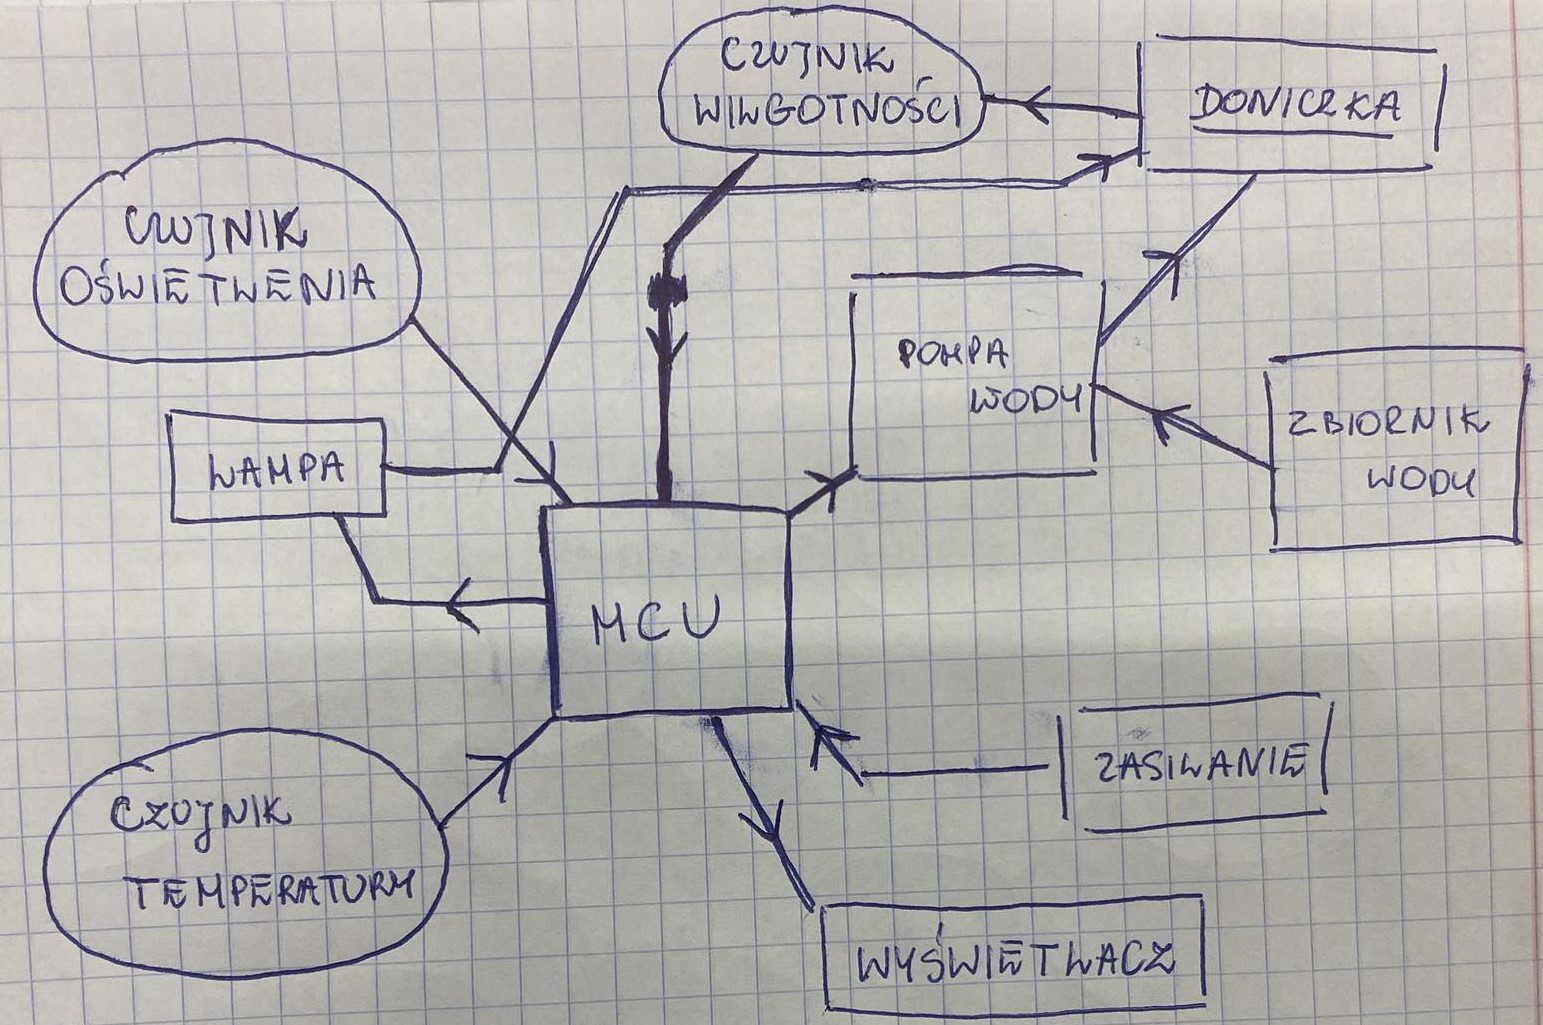 CZUJNIK
WILGOTNOŚCI
DONICZKA
CZUJNIK
OŚWIETLENIA
POMPA
WODY
ZBIORNIK
WODY
LAMPA
MCU
ZASILANIE
CZUJNIK
TEMPERATURY
WYŚWIETLACZ